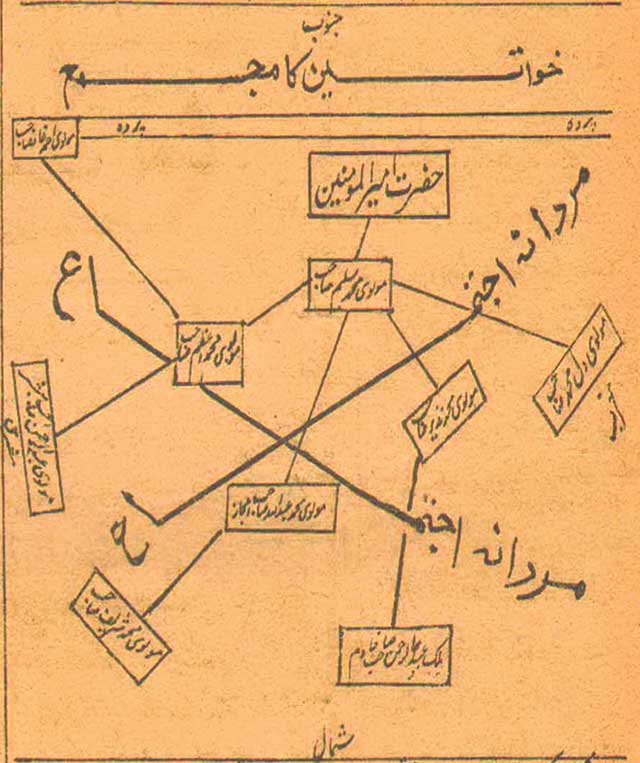 جنوب
خواتین کا مجمع
پردہ
پردہ
حضرت امیر المومنین
مردانہ اجتماع
مولوی محمد سلیم صاحب
مولوی محمد اعظم صاحب
مولوی دل محمد صاحب
مولوی محمد نذیر صاحب
مغرب
مشرق
مولوی محمد عبداللہ صاحب اعجاز
مردانہ اجتماع
مولوی محمد شریف صاحب
ملک عبدالرحمن صاحب خادم
شمال